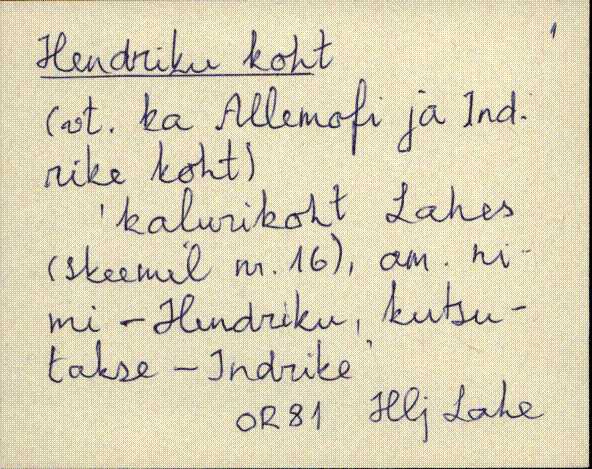 1
Hendriku koht
(vt. ka Allemofi ja Ind-
rike koht)
'kalurikoht Lahes
(skeemil nr. 16), am. ni-
mi - Hendriku, kutsu-
takse - Indrike'
OR 81 Hlj Lahe